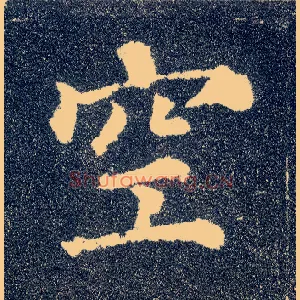 空
Shufawang.cn